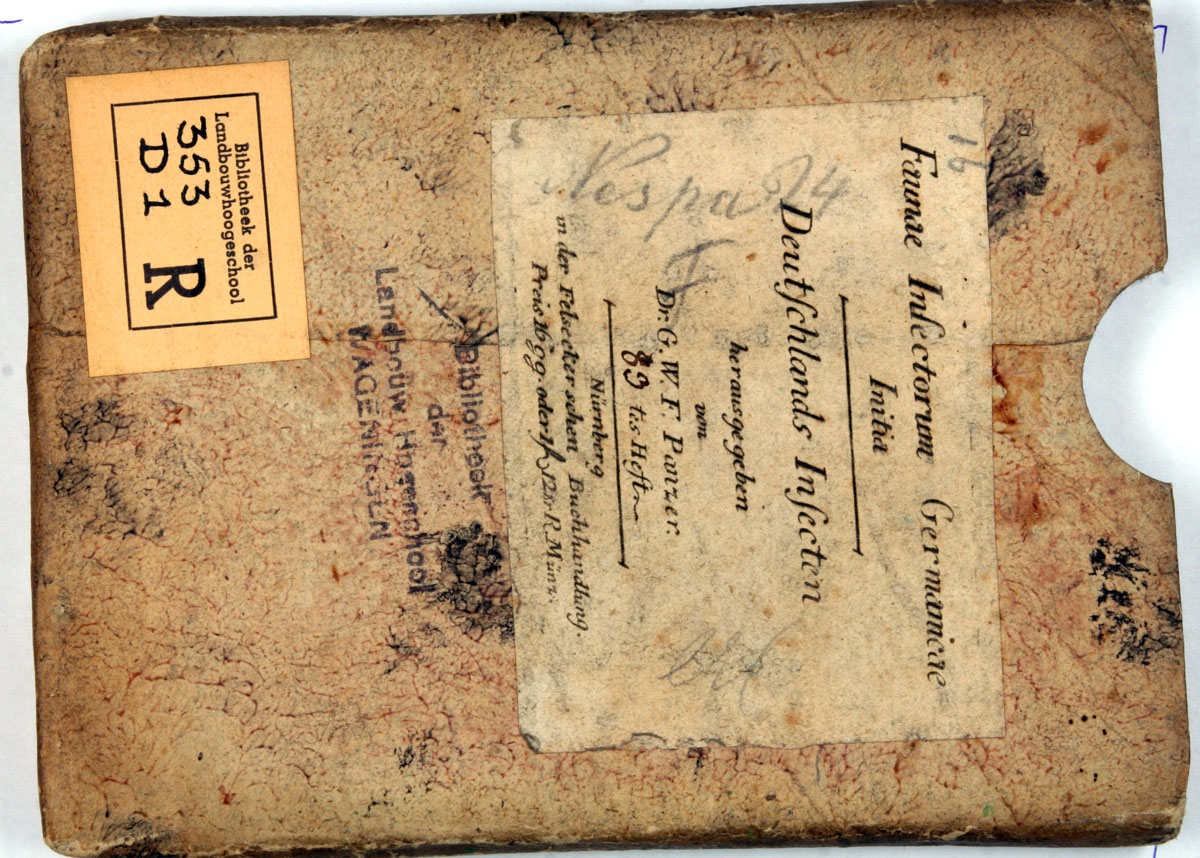 16
Faunae Insectorum Germanicae
Initia
Deutschlands Insecten
herausgegeben
von
Dr. G. W. F. Panzer.
89 tes Heft
Nürnberg
in der Felseckerschen Buchhandlung.
Preis 16 gg. oder 1 f 12 Xr R. Münz.
Vespa 24
Bibliotheek
der
Landbouw Hoogeschool
WAGENINGEN
Bibliotheek der
Landbouwhoogeschool
353
D1 R